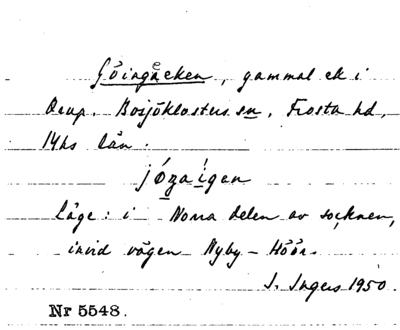 Göingaeken, gammal ek i
Orup. Bosjöklosters sn, Frosta hd,
14hs län.
józa ígen
Läge: i Norra delen av socknen,
invid vägen Nyby - Höör.
I. Ingers 1950.
Nr 5548.